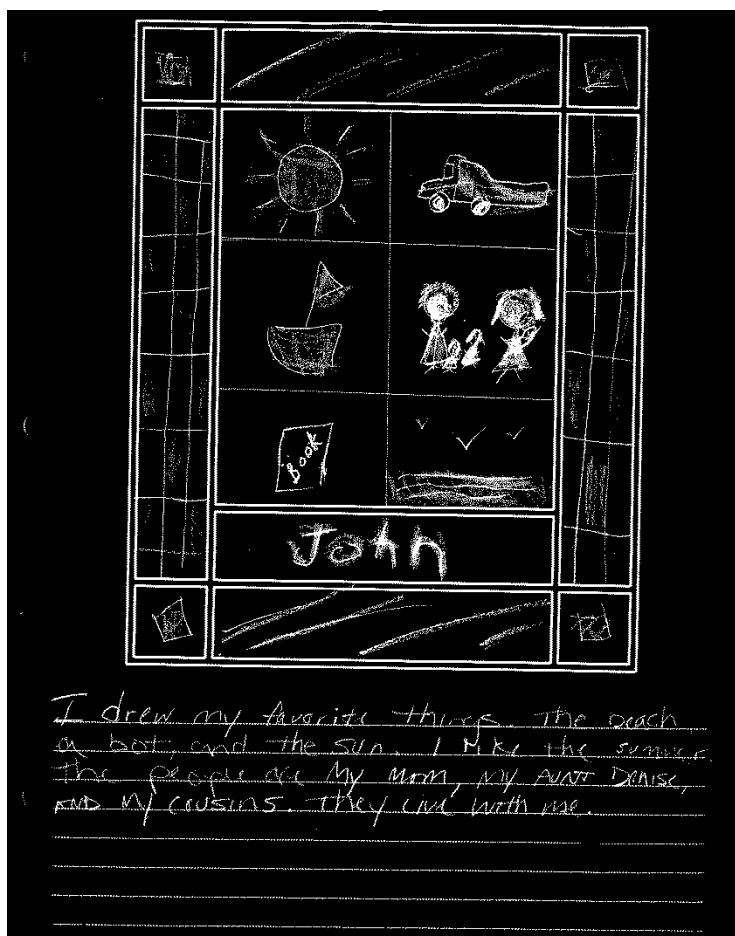 Book
John
I drew my favorite things. The beach
a bot, and the sun. I like the summer.
the people are My Mom, My AUNT Denise,
AND My cousins. They live with me.